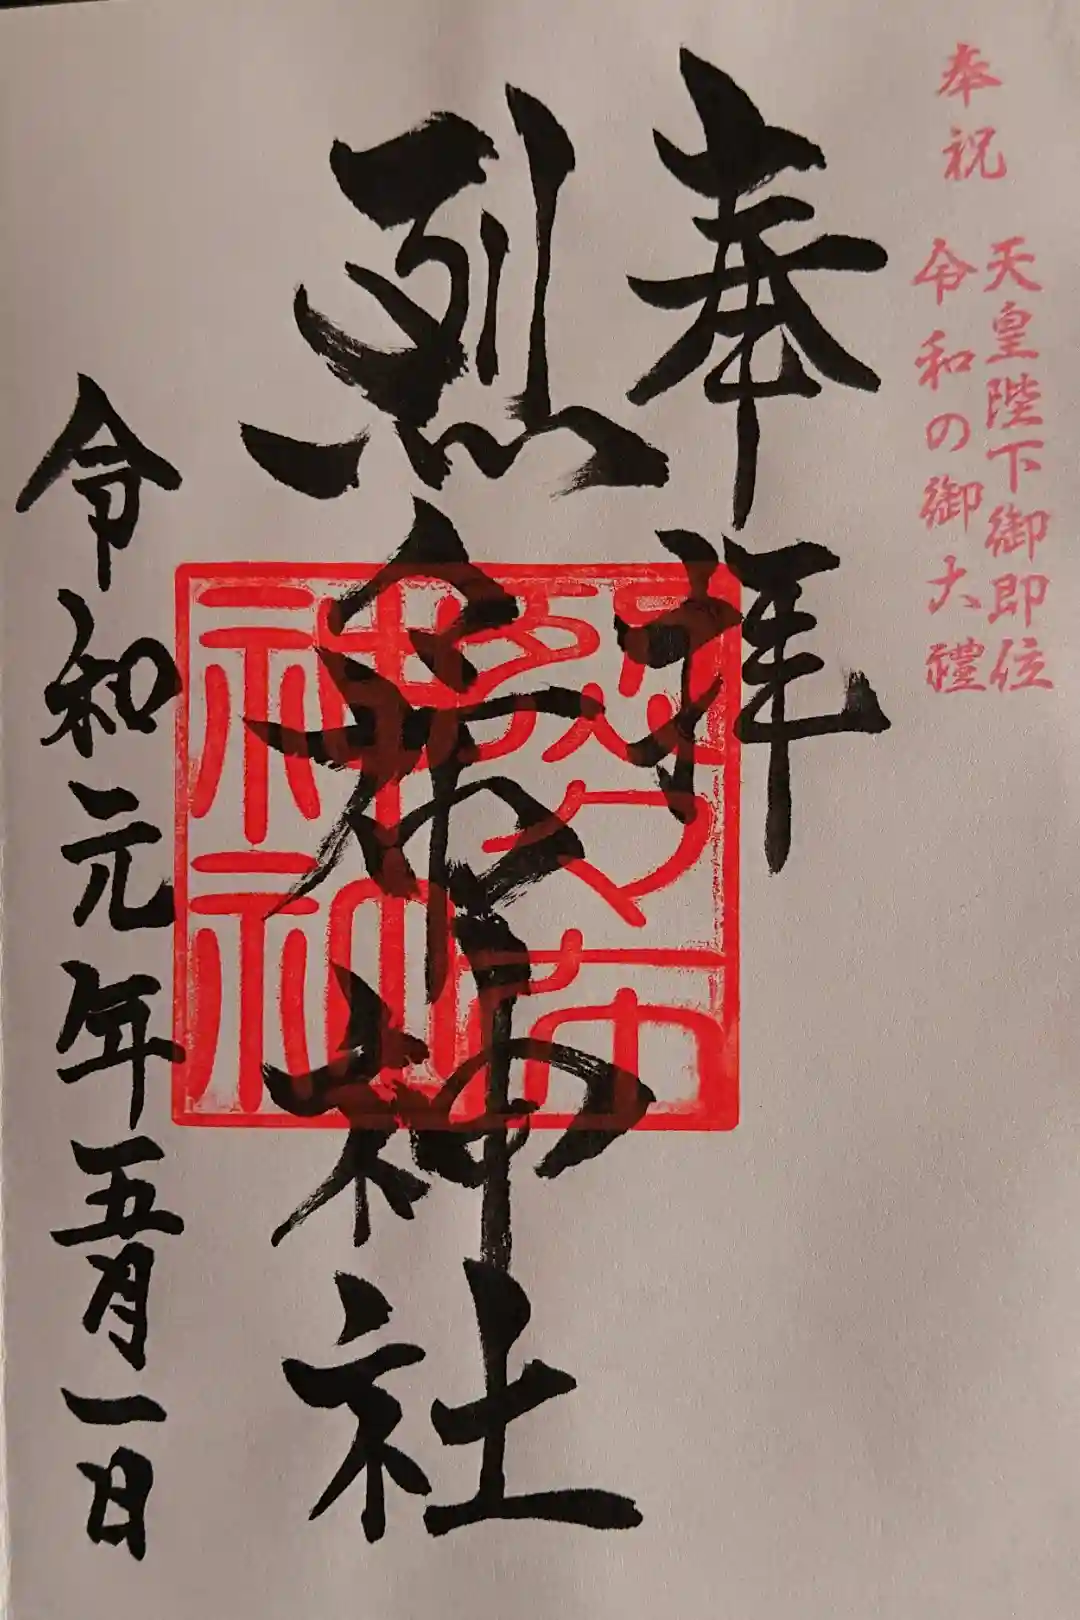 奉祝
天皇陛下御即位
令和の御大禮
奉拝
烈々布神社
令和元年五月一日
烈々布
神社